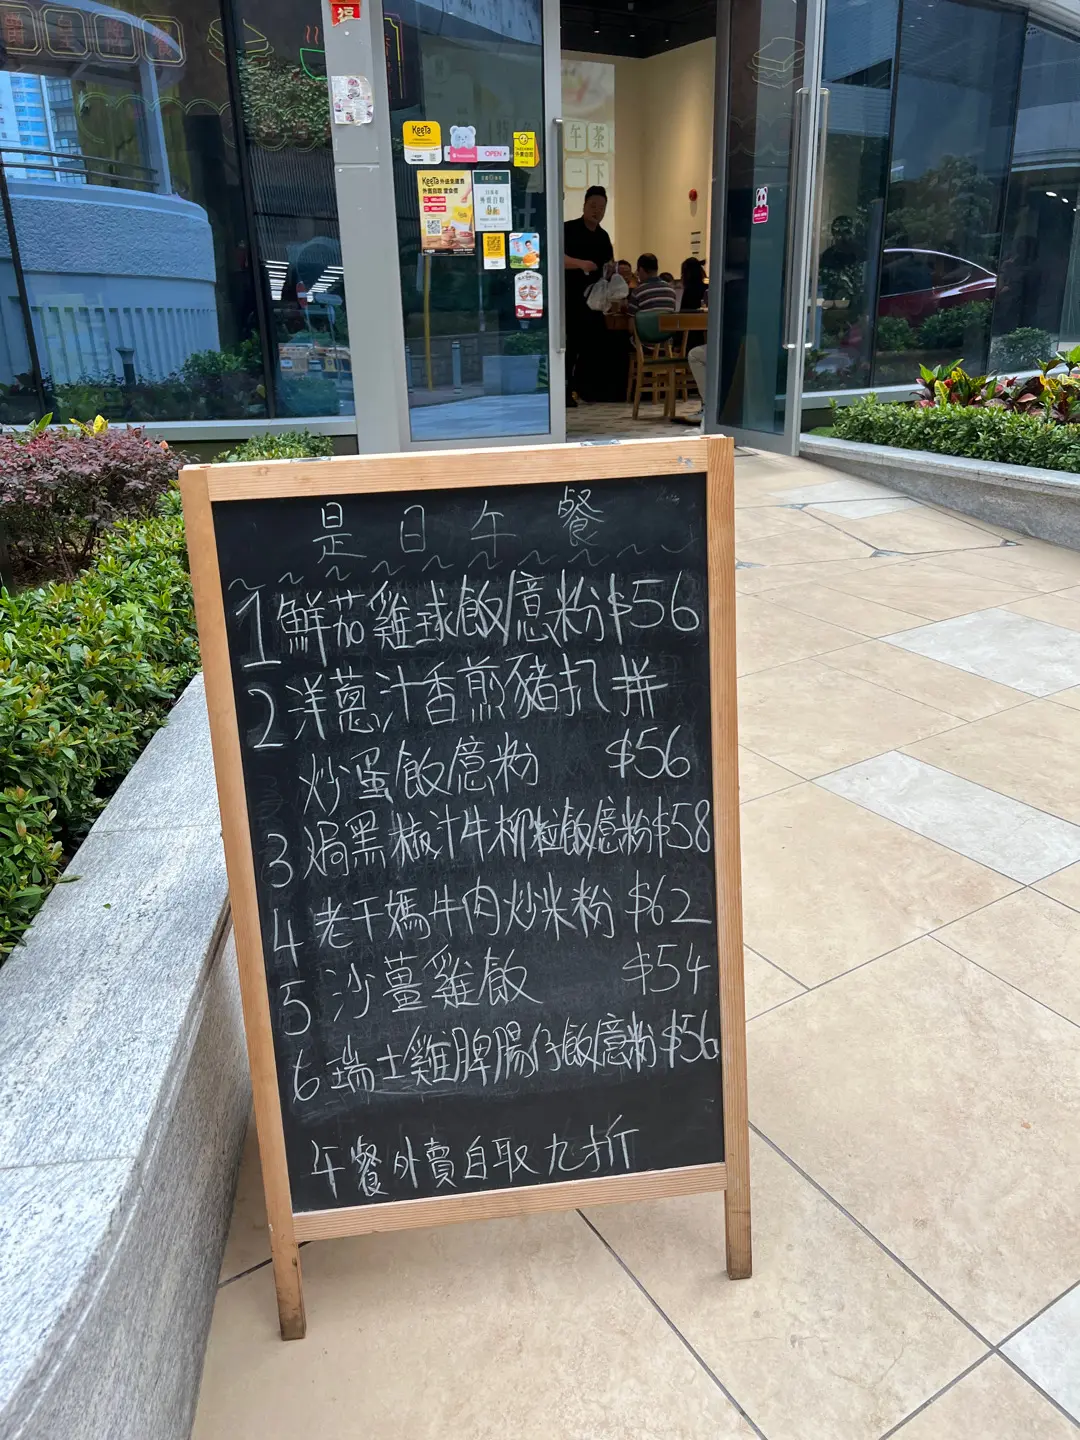 福
KeeTa
OPEN
KeeTa
外賣自取
午茶
一下
是日午餐
1 鮮茄雞球飯/意粉 $56
2 洋蔥汁香煎豬扒拼
炒蛋飯/意粉 $56
3 焗黑椒汁牛柳粒飯/意粉 $58
4 老干媽牛肉炒米粉 $62
5 沙薑雞飯 $54
6 瑞士雞脾腸仔飯/意粉 $56
午餐外賣自取九折